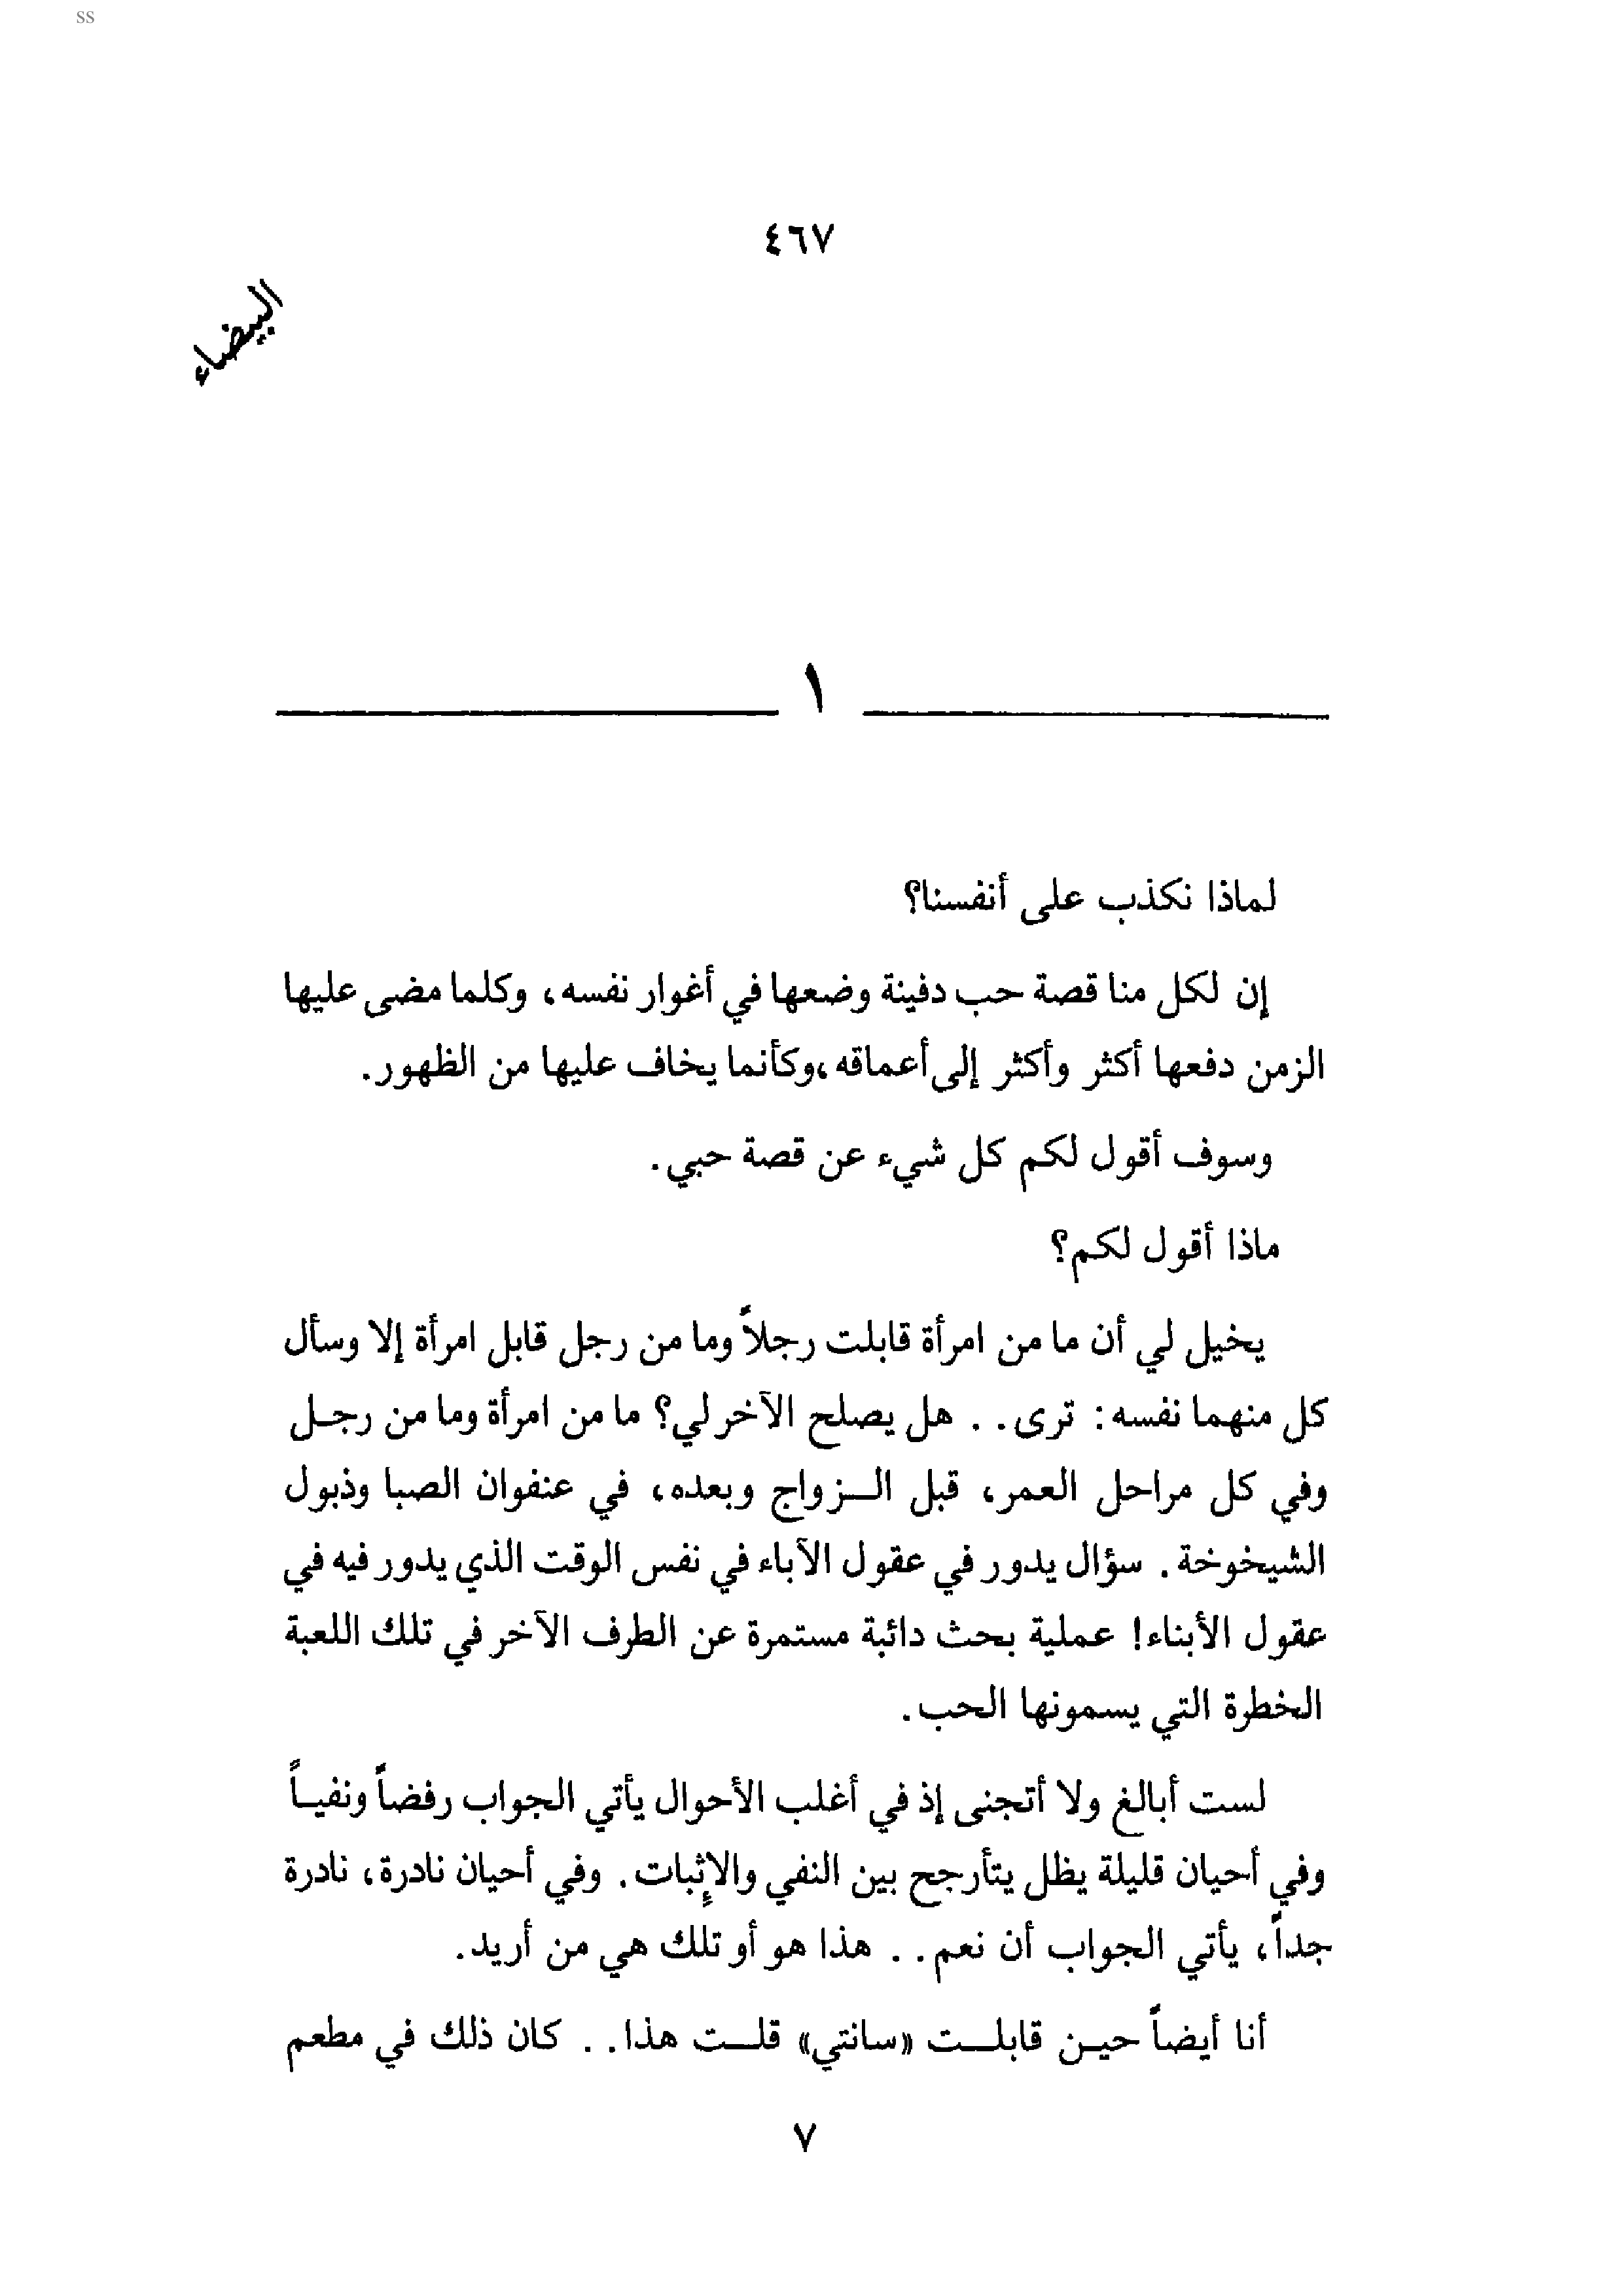 SS
٤٦٧
البيضاء
١
لماذا نكذب على أنفسنا؟
إن لكل منا قصة حب دفينة وضعها في أغوار نفسه، وكلما مضى عليها
الزمن دفعها أكثر وأكثر إلى أعماقه،وكأنما يخاف عليها من الظهور.
وسوف أقول لكم كل شيء عن قصة حبي.
ماذا أقول لكم؟
يخيل لي أن ما من امرأة قابلت رجلاً وما من رجل قابل امرأة إلا وسأل
كل منهما نفسه: ترى.. هل يصلح الآخر لي؟ ما من امرأة وما من رجـل
وفي كل مراحل العمر، قبل الـــزواج وبعده، في عنفوان الصبا وذبول
الشيخوخة. سؤال يدور في عقول الآباء في نفس الوقت الذي يدور فيه في
عقول الأبناء! عملية بحث دائبة مستمرة عن الطرف الآخر في تلك اللعبة
الخطرة التي يسمونها الحب.
لست أبالغ ولا أتجنى إذ في أغلب الأحوال يأتي الجواب رفضاً ونفيـاً
وفي أحيان قليلة يظل يتأرجح بين النفي والإثبات. وفي أحيان نادرة، نادرة
جداً، يأتي الجواب أن نعم.. هذا هو أو تلك هي من أريد.
أنا أيضاً حيـن قابلـــت «سانتي» قلـــت هذا.. كان ذلك في مطعم
٧